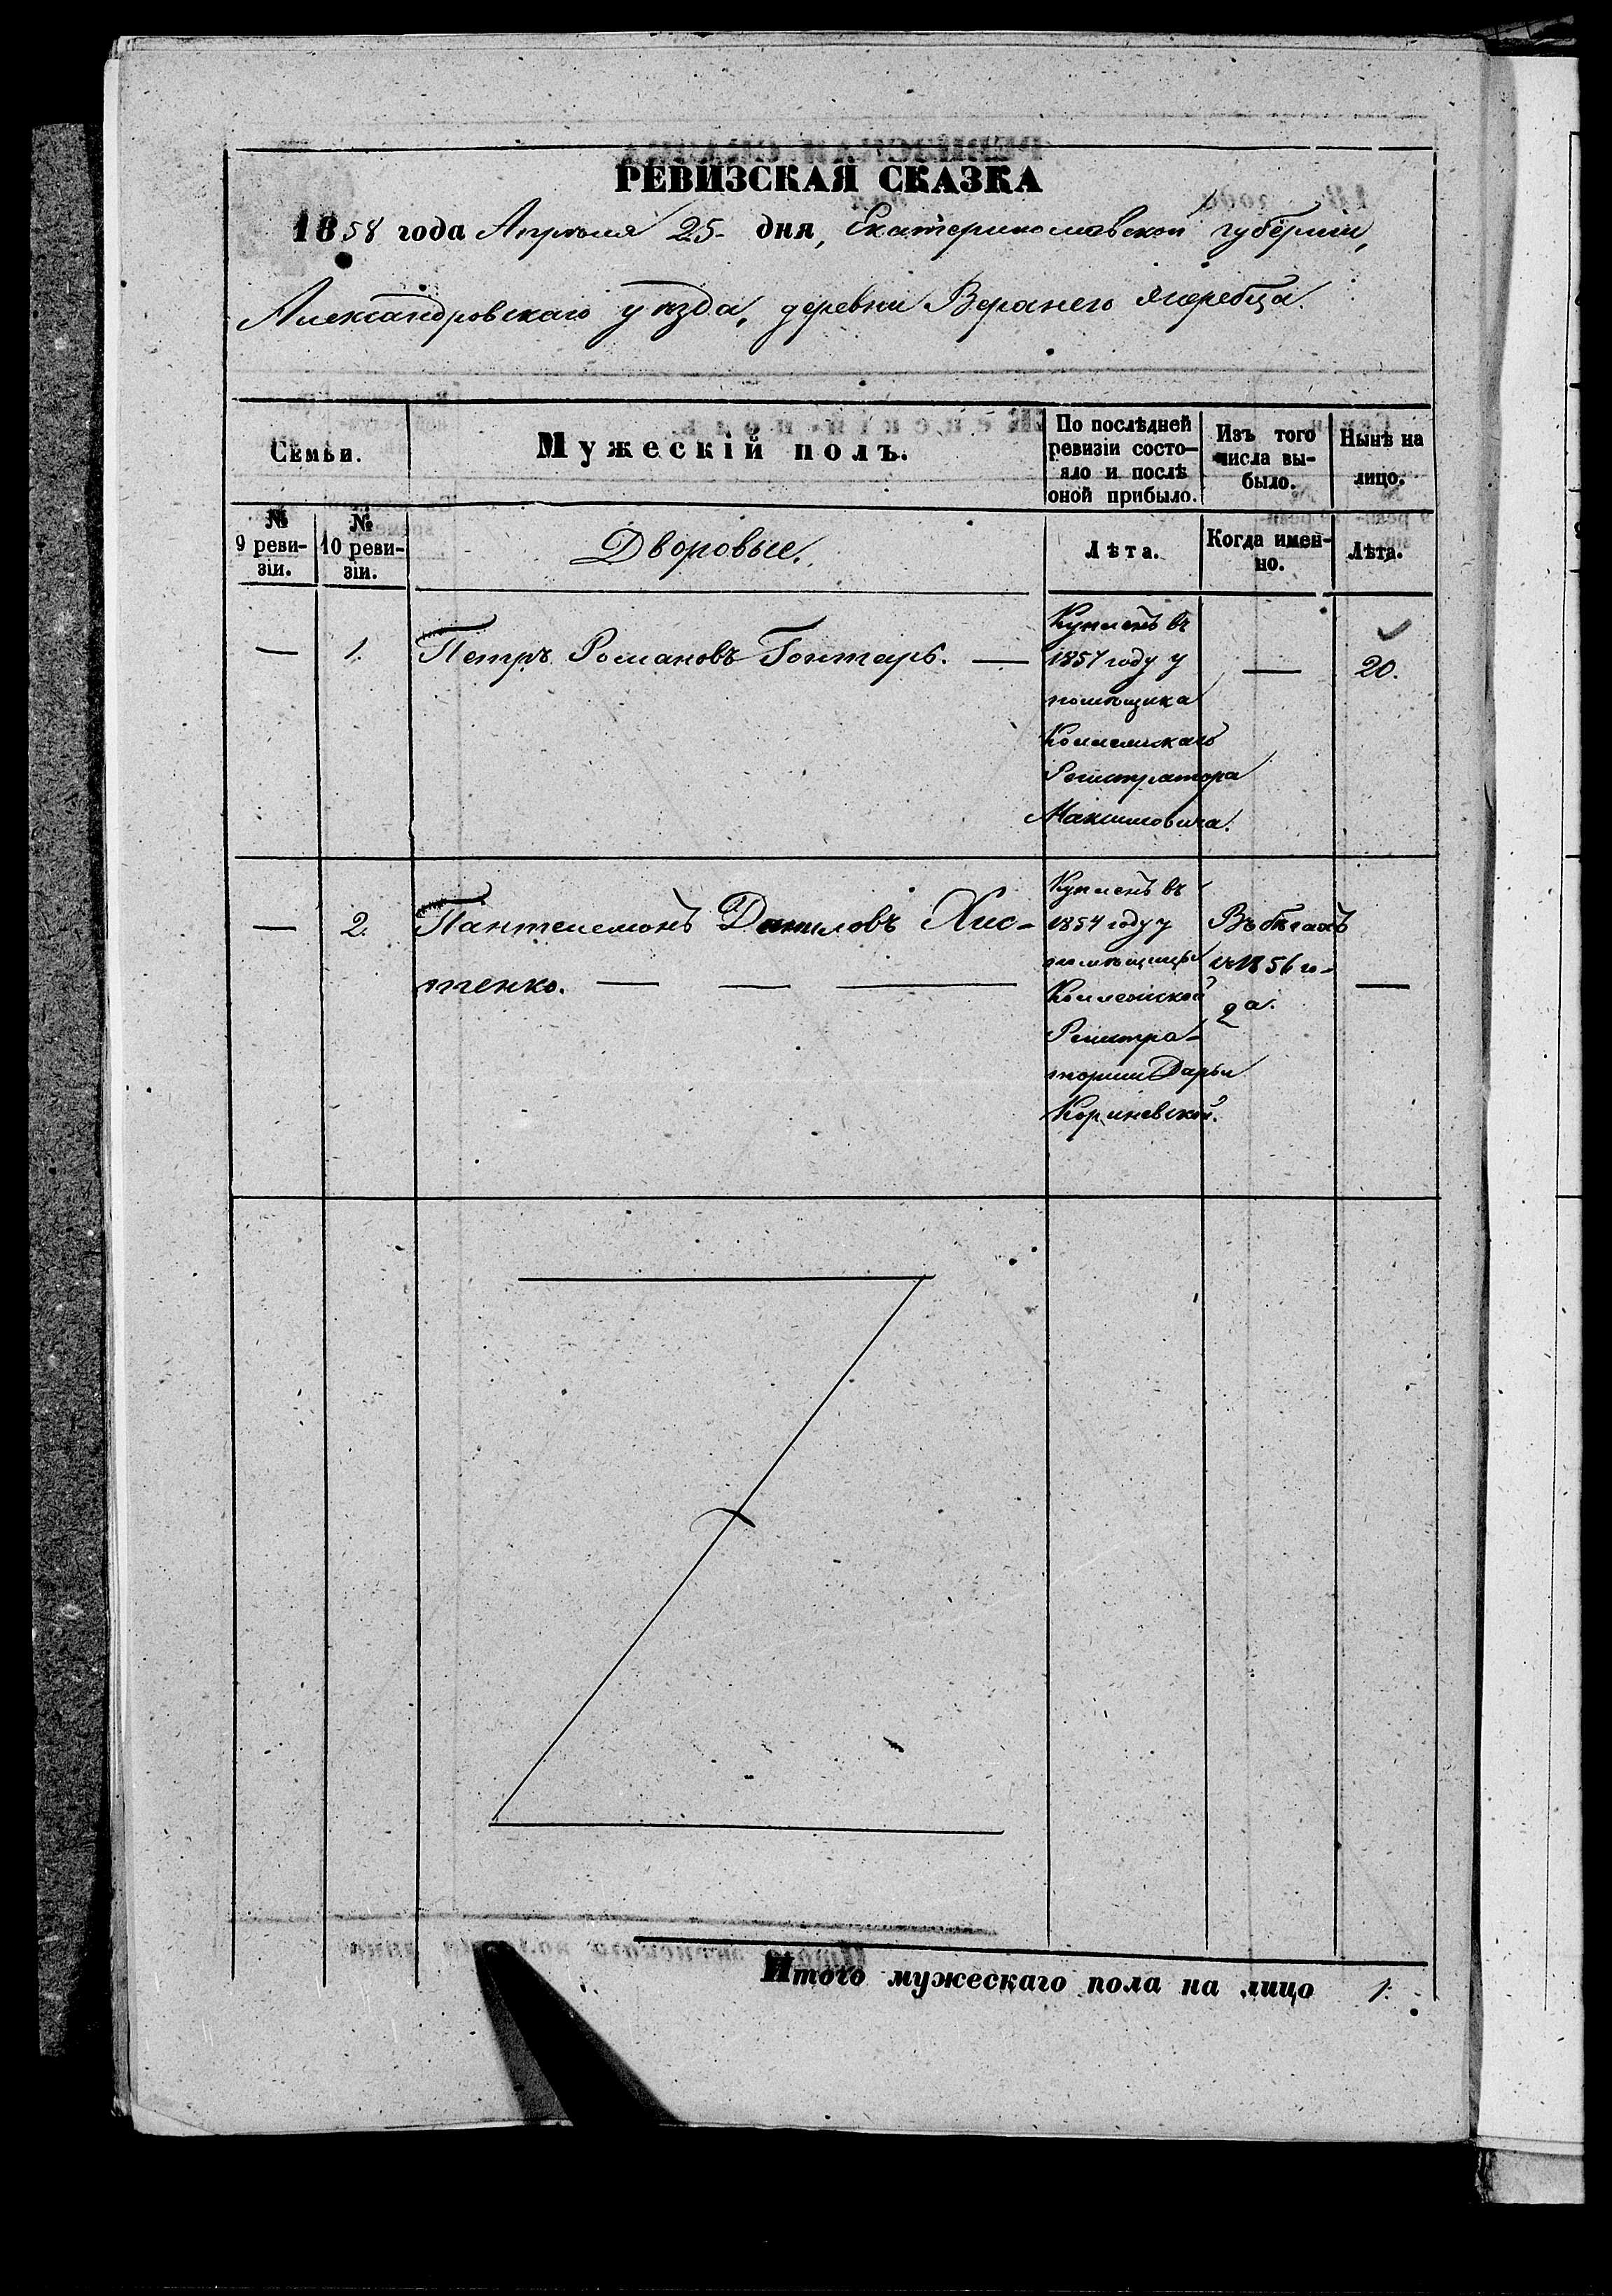 РЕВИЗСКАЯ СКАЗКА
1858 года Апрѣля 25 дня, Екатеринославской губерніи,
Александровскаго уѣзда, деревни Верхнего Жеребца
Семьи.
Мужескій полъ.
По послѣдней
ревизіи состо-
яло и послѣ
оной прибыло.
Изъ того
числа вы-
было.
Нынѣ на
лицо.
№
9 реви-
зіи.
№
10 реви-
зіи.
Дворовые.
Лѣта.
Когда имен-
но.
Лѣта.
— 1. Петръ Романовъ Гонтарь. —
Купленъ въ
1857 году у
помѣщика
Коллежскаго
Регистратора
Максимовича.
—
20.
— 2. Пантелемонъ Даниловъ Хис-
тенко. — — —
Купленъ въ
1854 году у
помѣщицы
Коллежской
Регистра-
торши Дарьи
Кориневской.
Въ бѣгахъ
съ 1856 го-
да.
—
Итого мужескаго пола на лицо 1.